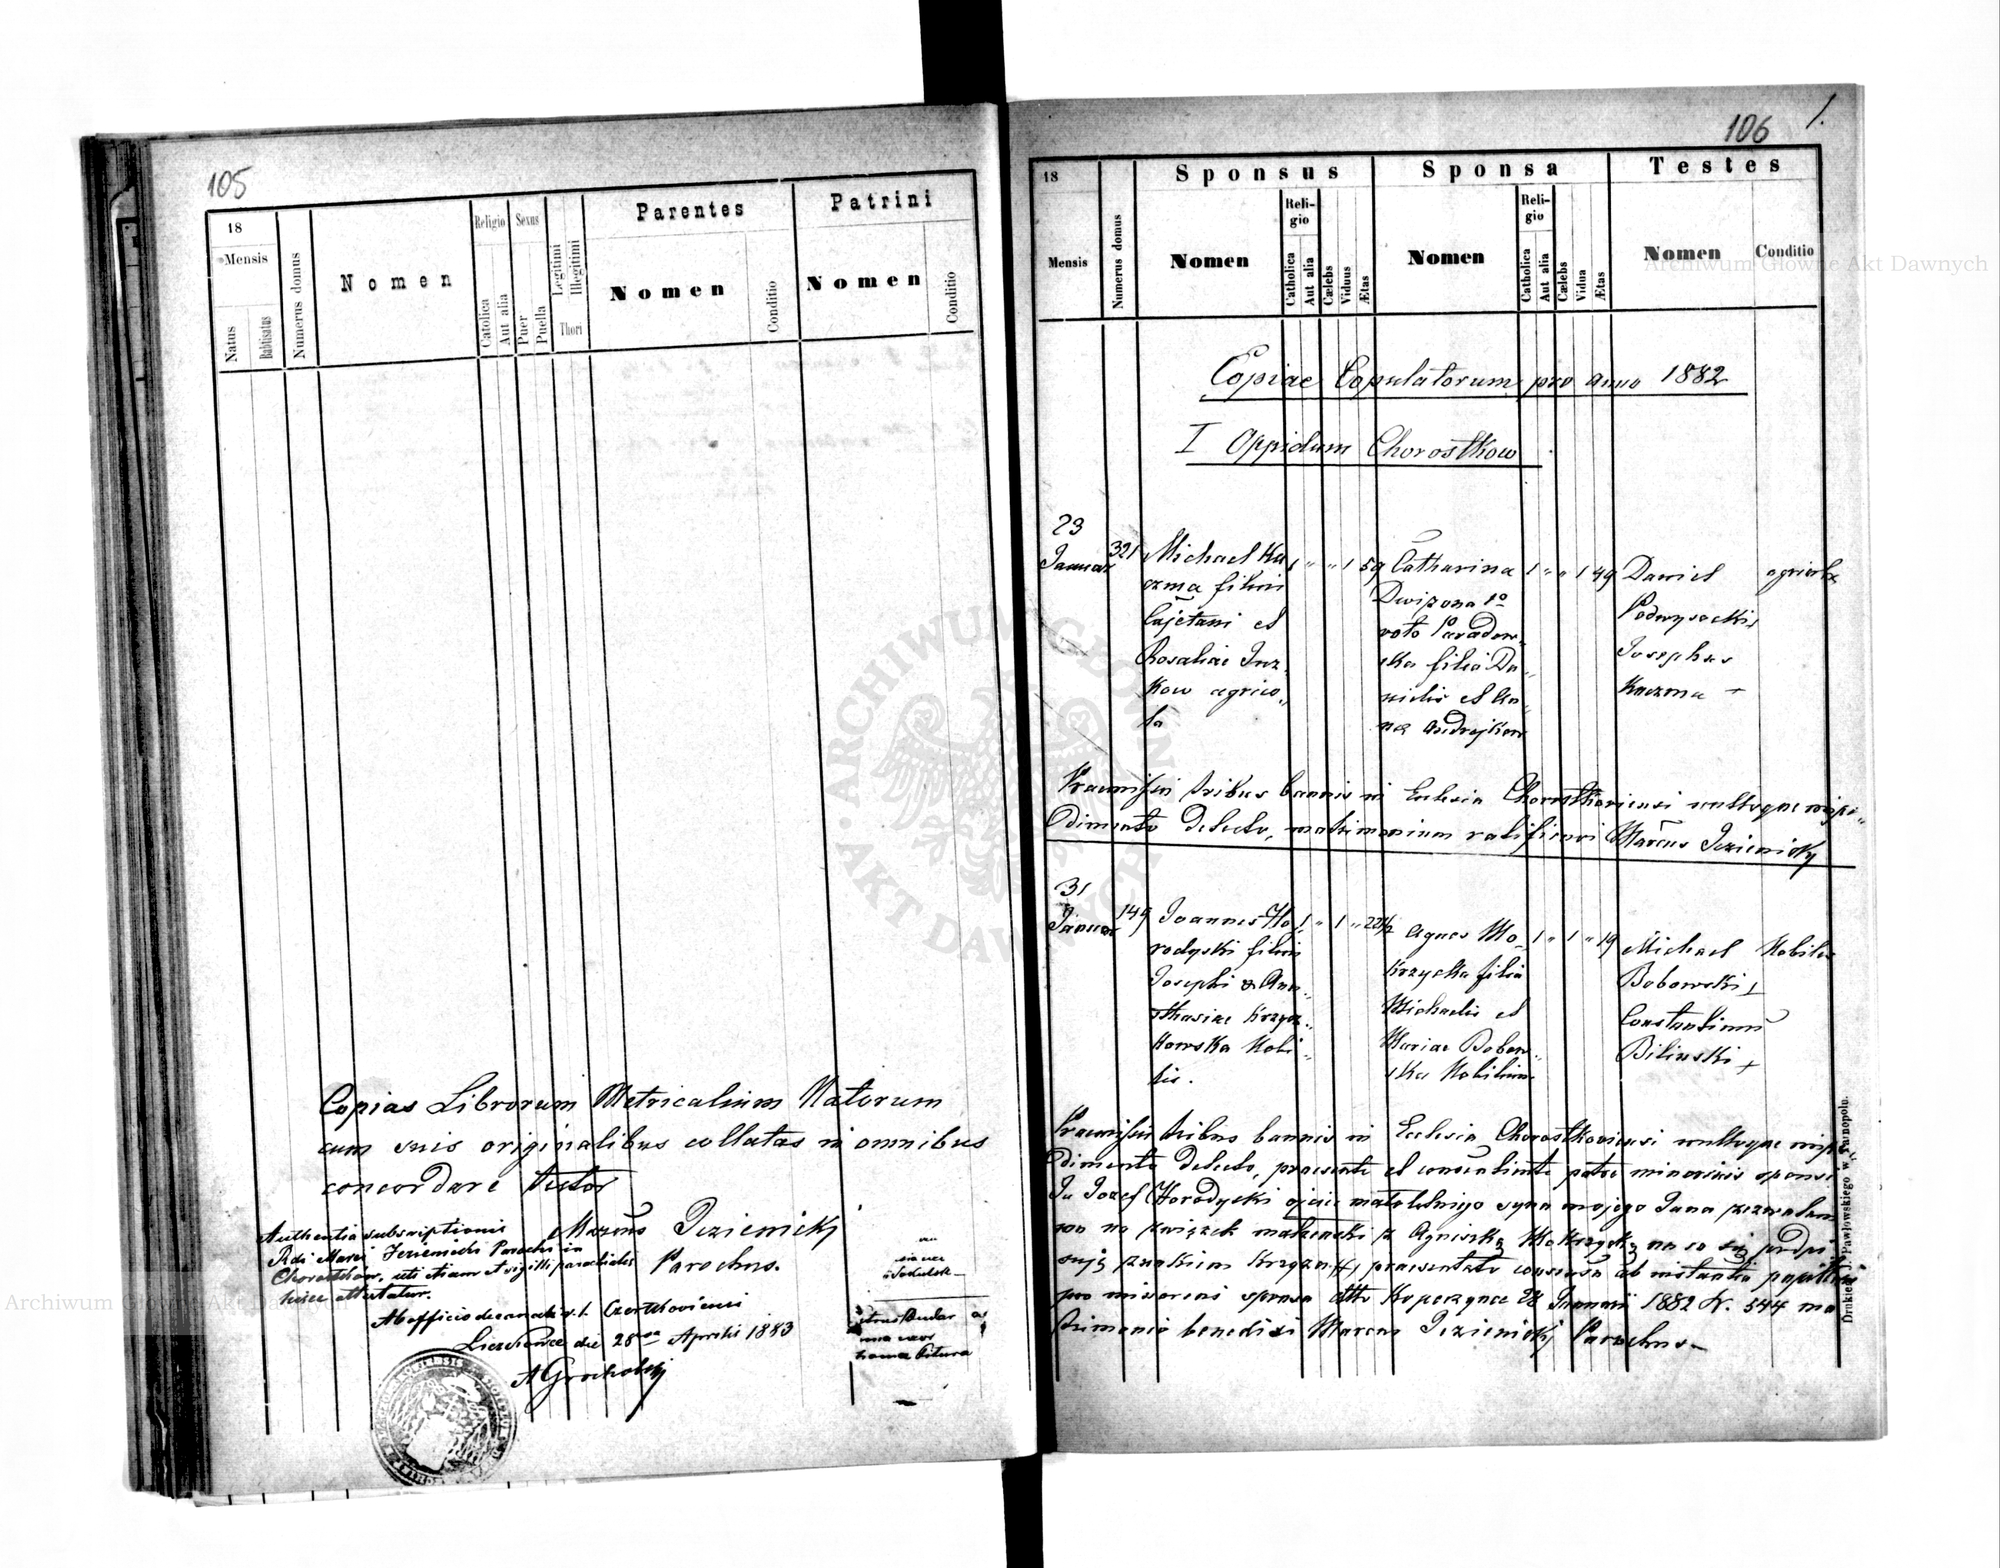 105
18
Mensis
Natus
Babtisatus
Numerus domus
Nomen
Religio
Catolica
Aut alia
Sexus
Puer
Puella
Legitimi
Illegitimi
Thori
Parentes
Nomen
Conditio
Patrini
Nomen
Conditio
Copias Librorum Metricalium Natorum
cum suis originalibus collatas in omnibus
concordare testor
Marcus Jezienicki
Parochus.
Authentia subscriptionis
Rdi Marci Jezienicki Parochi in
Chorostkow, uti etiam et sigilli parochialis
hisce attestatur.
Ab officio decanali r. l. Czortkoviensi
die 28va Aprilis 1883
A Grocholski
106
1.
18
Mensis
Numerus domus
Sponsus
Nomen
Reli-
gio
Catholica
Aut alia
Cælebs
Viduus
Ætas
Sponsa
Nomen
Reli-
gio
Catholica
Aut alia
Cælebs
Vidua
Ætas
Testes
Nomen
Conditio
Copiae Copulatorum pro anno 1882
I Oppidum Chorostkow
23
Januar
321
Michael Ka
czma filius
Cajetani et
Rosaliae
kow agrico„
la
1 „ „ 1 59
Catharina
1o
voto Paradow„
ska filia Da„
nielis et An„
nae Andrejkow
1 „ „ 1 49
Daniel
Podwysocki
Josephus
Kaczma +
agricolae
Praemissis tribus bannis in Ecclesia Chorostkoviensi nulloque impe„
dimento detecto, matrimonium ratificavi Marcus Jezienicki
31
Januar
149
Joannes Ho„
rodyski filius
Josephi & Ana„
sthasiae Krzycz„
kowska Nobi„
lis.
1 „ 1 „ 22½
Agnes Mo„
krzycka filia
Michaelis et
Mariae Bobow„
ska Nobilium
1 „ 1 „ 19
Michael
Bobowski +
Constantinus
Bilinski +
Nobiles
Praemissis tribus bannis in Ecclesia Chorostkoviensi nulloque impe„
dimento detecto, praesente et consentiente patre minorenis sponsi
Ja Jozef Horodyski ojciec małoletniego syna mojego Jana pozwalam
mu na związek małżeński z Agnieszką Mokrzycką na co się podpi
suję znakiem krzyża +, praesentato consensu ab instantia pupillari
pro minoreni sponsa dtto Kopeczynce 28 Januarii 1882 N. 544 ma
trimonio benedixi Marcus Jezienicki Parochus
Drukiem J. Pawłowskiego w Tarnopolu.
ARCHIWUM GŁÓWNE AKT DAWNYCH
Archiwum Główne Akt Dawnych
Archiwum Główne Akt Dawnych